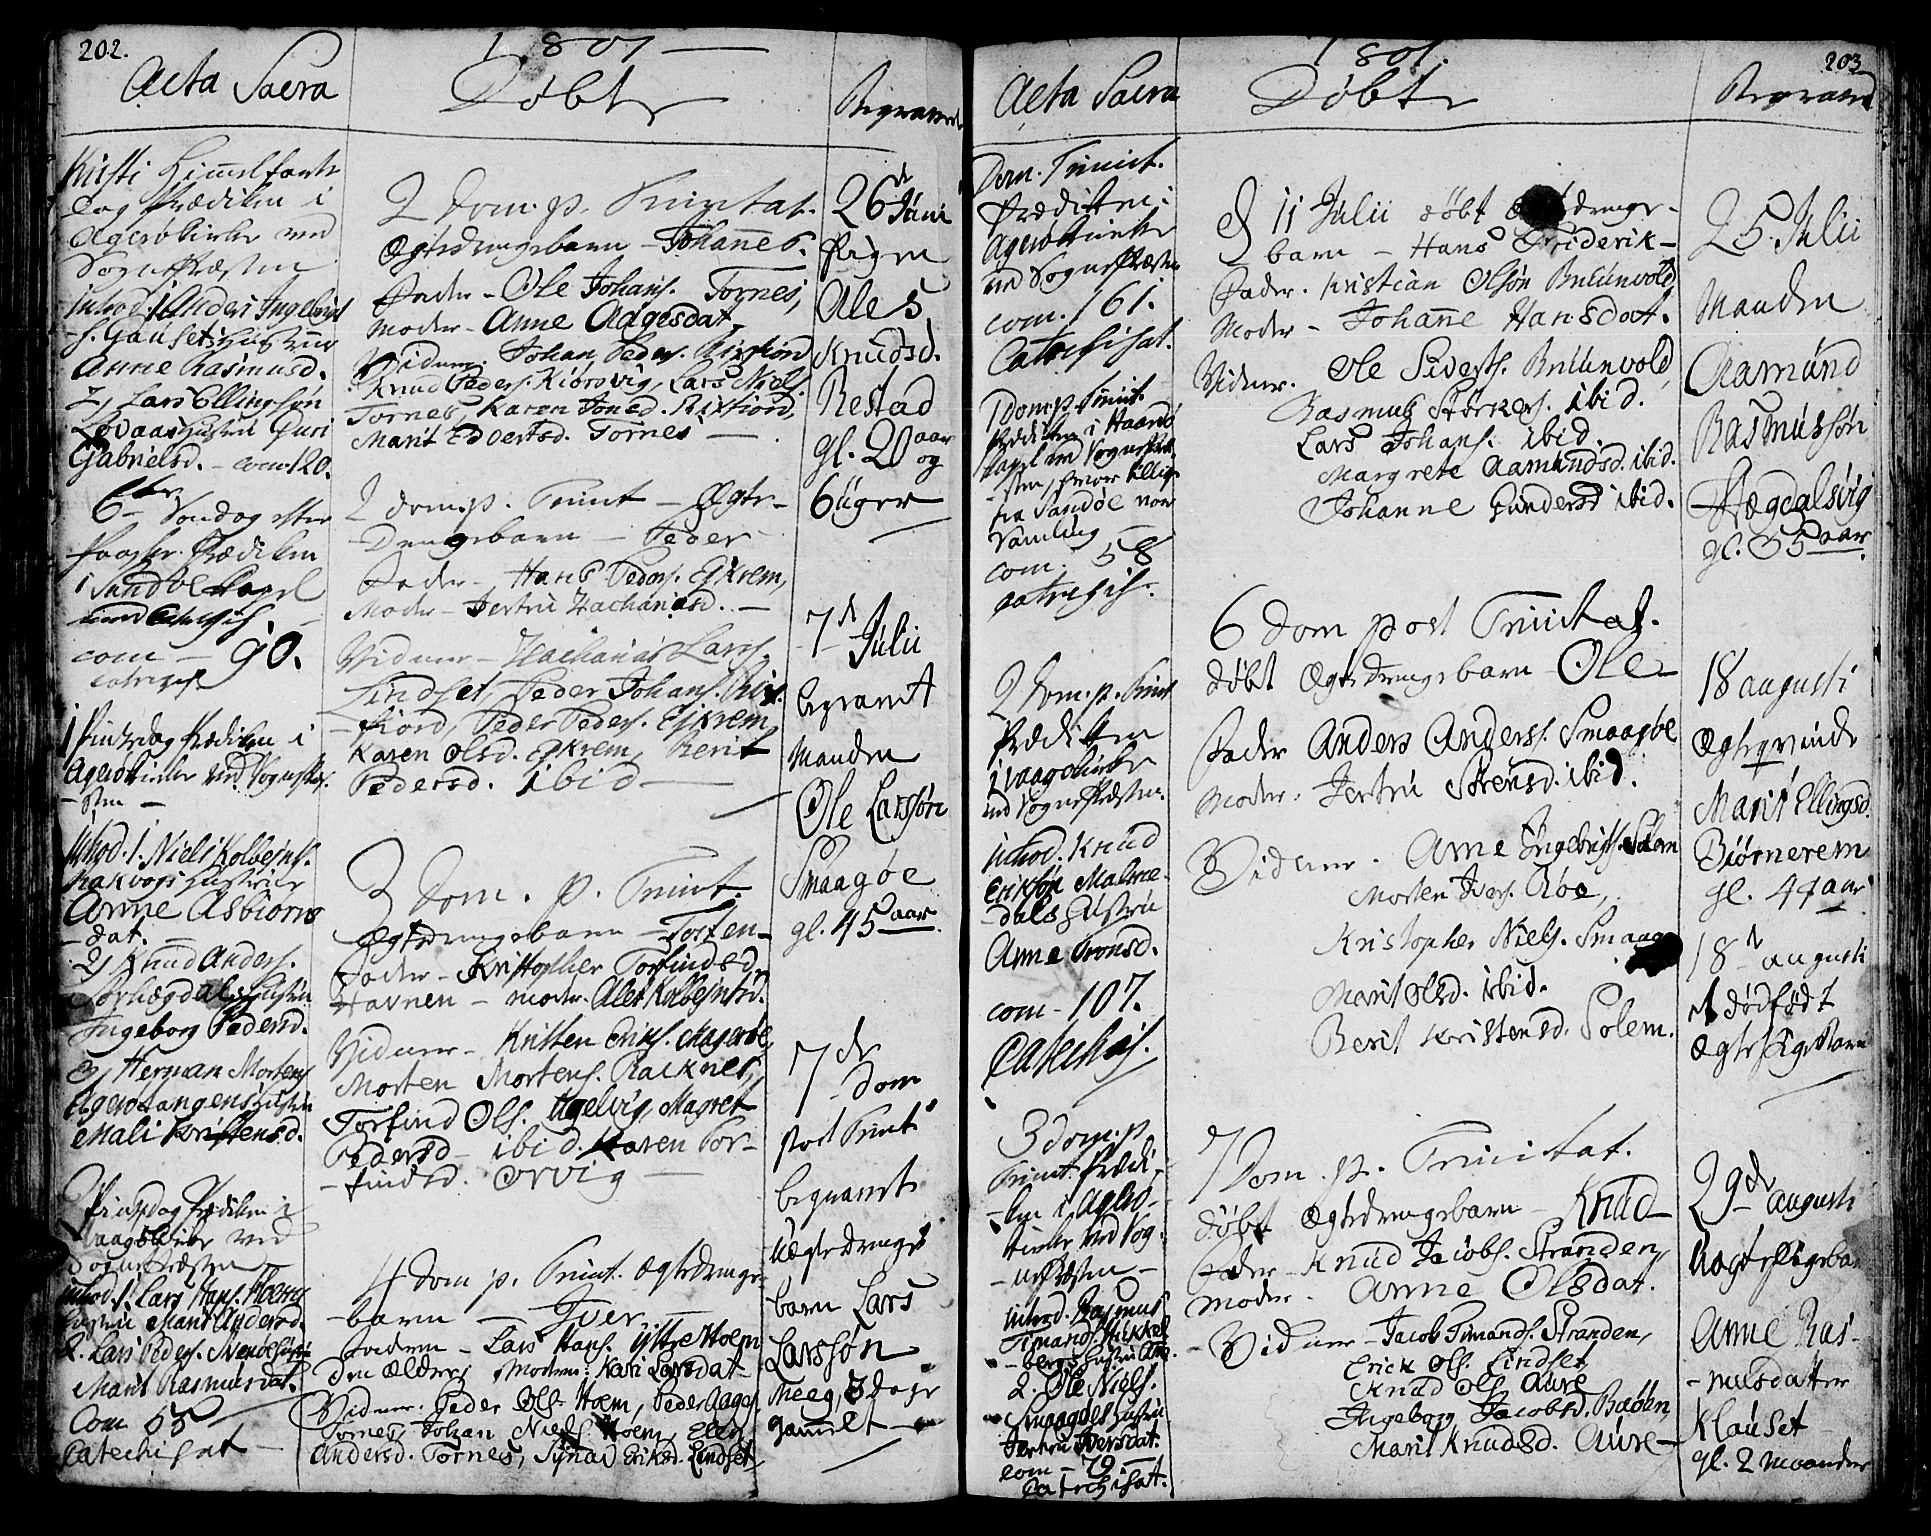 202.
1801
Acta Sacra
Døbte
Begravede
Kristi Himmelfarts
Dag Prædiken i
Agerøkirke ved
Sognepræsten
introd. 1, Anders Ingebrigt
s. Gausets Hustrue
Anne Rasmusd.
2, Lars Ellingsøn
Løvaas Hustru Guri
Gabrielsd. - com. 120.
6te Søndag efter
Paaske. Prædiken
i Sandøe Kapel
med Catechis.
com - 90.
catechis.
1 Pintzedag Prædiken i
Agerøkirke ved Sognepræ-
-sten -
introd. 1. Niels Kolbejns.
Hustrue
Anne Asbiørns
-dat.
2, Knud Anders.
Sørhægdals Hustru
Ingeborg Pedersd.
3, Herman Mortens
Agerøetangens Hustru
Mali Kristensd.
2 Pintzedag Prædiken i
Vaagøekirke ved
Sognepræsten
introd. 1. Lars Hans. Hoems
Hustru Marit Andersd.
2. Lars Peders.
Marit Rasmusdat.
Com 55
Catechisat -
2 Dom. p. Trinitat.
Ægtedrengebarn - Johannes.
Fader - Ole Johans. Tornes,
Moder - Anne Aagesdat.
Vidner. Johan Peders. Rixfiord
Knud Peders. Kiørsvig, Lars Niels.
Tornes, Karen Jonsd. Rixfiord,
Marit Edvertsd. Tornes -
2 dom. p. Trinit - Ægte-
-Drengebarn - Peder
Fader - Hans Peders. Ejkrem,
Moder - Jertru Zachariasd. -
Vidner - Zacharias Lars.
Lindset, Peder Johans. Rix-
-fiord, Peder Peders. Ejkrem,
Karen Olsd. Ejkrem, Berit
Pedersd. ibid -
3 Dom. p. Trinit.
Ægtedrengebarn - Tosten -
Fader - Kristopher Torfinds.
Havnen - moder. Ales Kolbejnsd.
Vidner - Kristen Eriks. Magerøe,
Morten Mortens. Raeknes,
Torfind Ols. Ugelvig, Magret
Pedersd - ibid. Karen Tor-
-findsd. Orvig -
4 Dom p. Trinit. Ægtedrenge-
-barn - Iver -
Faderen - Lars Hans. Ytre Hoem
Den ældre, Moderen: Kari Larsdat -
Vidner. Peder Ols. Hoem, Peder Aages.
Tornes, Johan Niels. Hoem, Elen
Andersd. Tornes, Synav Eriksd. Lindset,
26d Juni
Pigen
Ales
Knudsd.
Restad
gl. 20 aar
og
6 uger
7d Julii
begravet
Manden
Ole Larssøn
Smaagøe
gl. 45 aar.
7de
- Dom
post Trinit
begravet
Uægte Drenge
-barn Lars
Larssøn
Meeg, 3 Dage
gamelt -
1801.
203
Acta Sacra
Døbte
Begravede
Dom. Trinit.
Prædiken i
Agerøkirke
ved Sognepræsten
com. 161.
Catechisat.
1 Dom. p. Trinit.
Prædiken i Haarøe
Kapel ved Sognepræ-
-sten, hvor tillige
fra Sandøe var
Samling -
com. 58
catechis.
2 Dom. p. Trinit
Prædiken
i Vaagøekirke
ved Sognepræsten.
introd. Knud
Eriksøn Malme-
-dals Hustru
Anne Tronsd.
com - 107.
Catechis.
3 dom. p.
Trinit. Prædi-
-ken i Agerø-
-kirke ved Sog-
-nepræsten -
introd. Rasmus
Timands. Mikkel-
-bergs Hustru
2. Ole Niels.
Smaagøes Hustru
Jertru Iversdat.
com - 79 -
Catechisat.
d 11 Julii døbt Ægtedrenge-
barn - Hans Friderik -
Fader. Kristian Olsøn Bruunvold,
Moder - Johanne Hansdat.
Vidner. Ole Siverts. Bruunvold,
Rasmus Størkers. ibid.
Lars Johans. ibid.
Margrete Aamundsd. ibid.
Johanne Gundersd ibid.
6 Dom post Trinitat.
døbt Ægtedrengebarn - Ole -
Fader Anders Anderss. Smaagøe
Moder. Jertru Sørensd. ibid.
Vidner. Arne Ingebrigts. Solem
Morten Ivers. Røe,
Kristopher Niels. Smaagøe
Marit Olsd. ibid.
Berit Kristensd. Solem.
7 Dom. p. Trinitat.
døbt Ægtedrengebarn - Knud -
Fader - Knud Jacobs. Stranden,
Moder - Anne Olsdat.
Vidner - Jacob Timands. Stranden,
Erick Ols. Lindset
Knud Ols. Aure
Ingeborg Jacobsd. Bøen,
Marit Knudsd. Aure -
25. Julii
Manden
Aamund
Rasmussøn
Hægdalsvig
gl. 35 aar.
18 augusti
Ægteqvinde
Marit Ellingsd.
Biørnerem
gl. 44 aar
18d augusti
et dødfødt
Ægte Pigebarn
29de augusti
Uægte Pigebarn
Anne Ras-
-musdatter
Klauset
gl. 2 maaneder